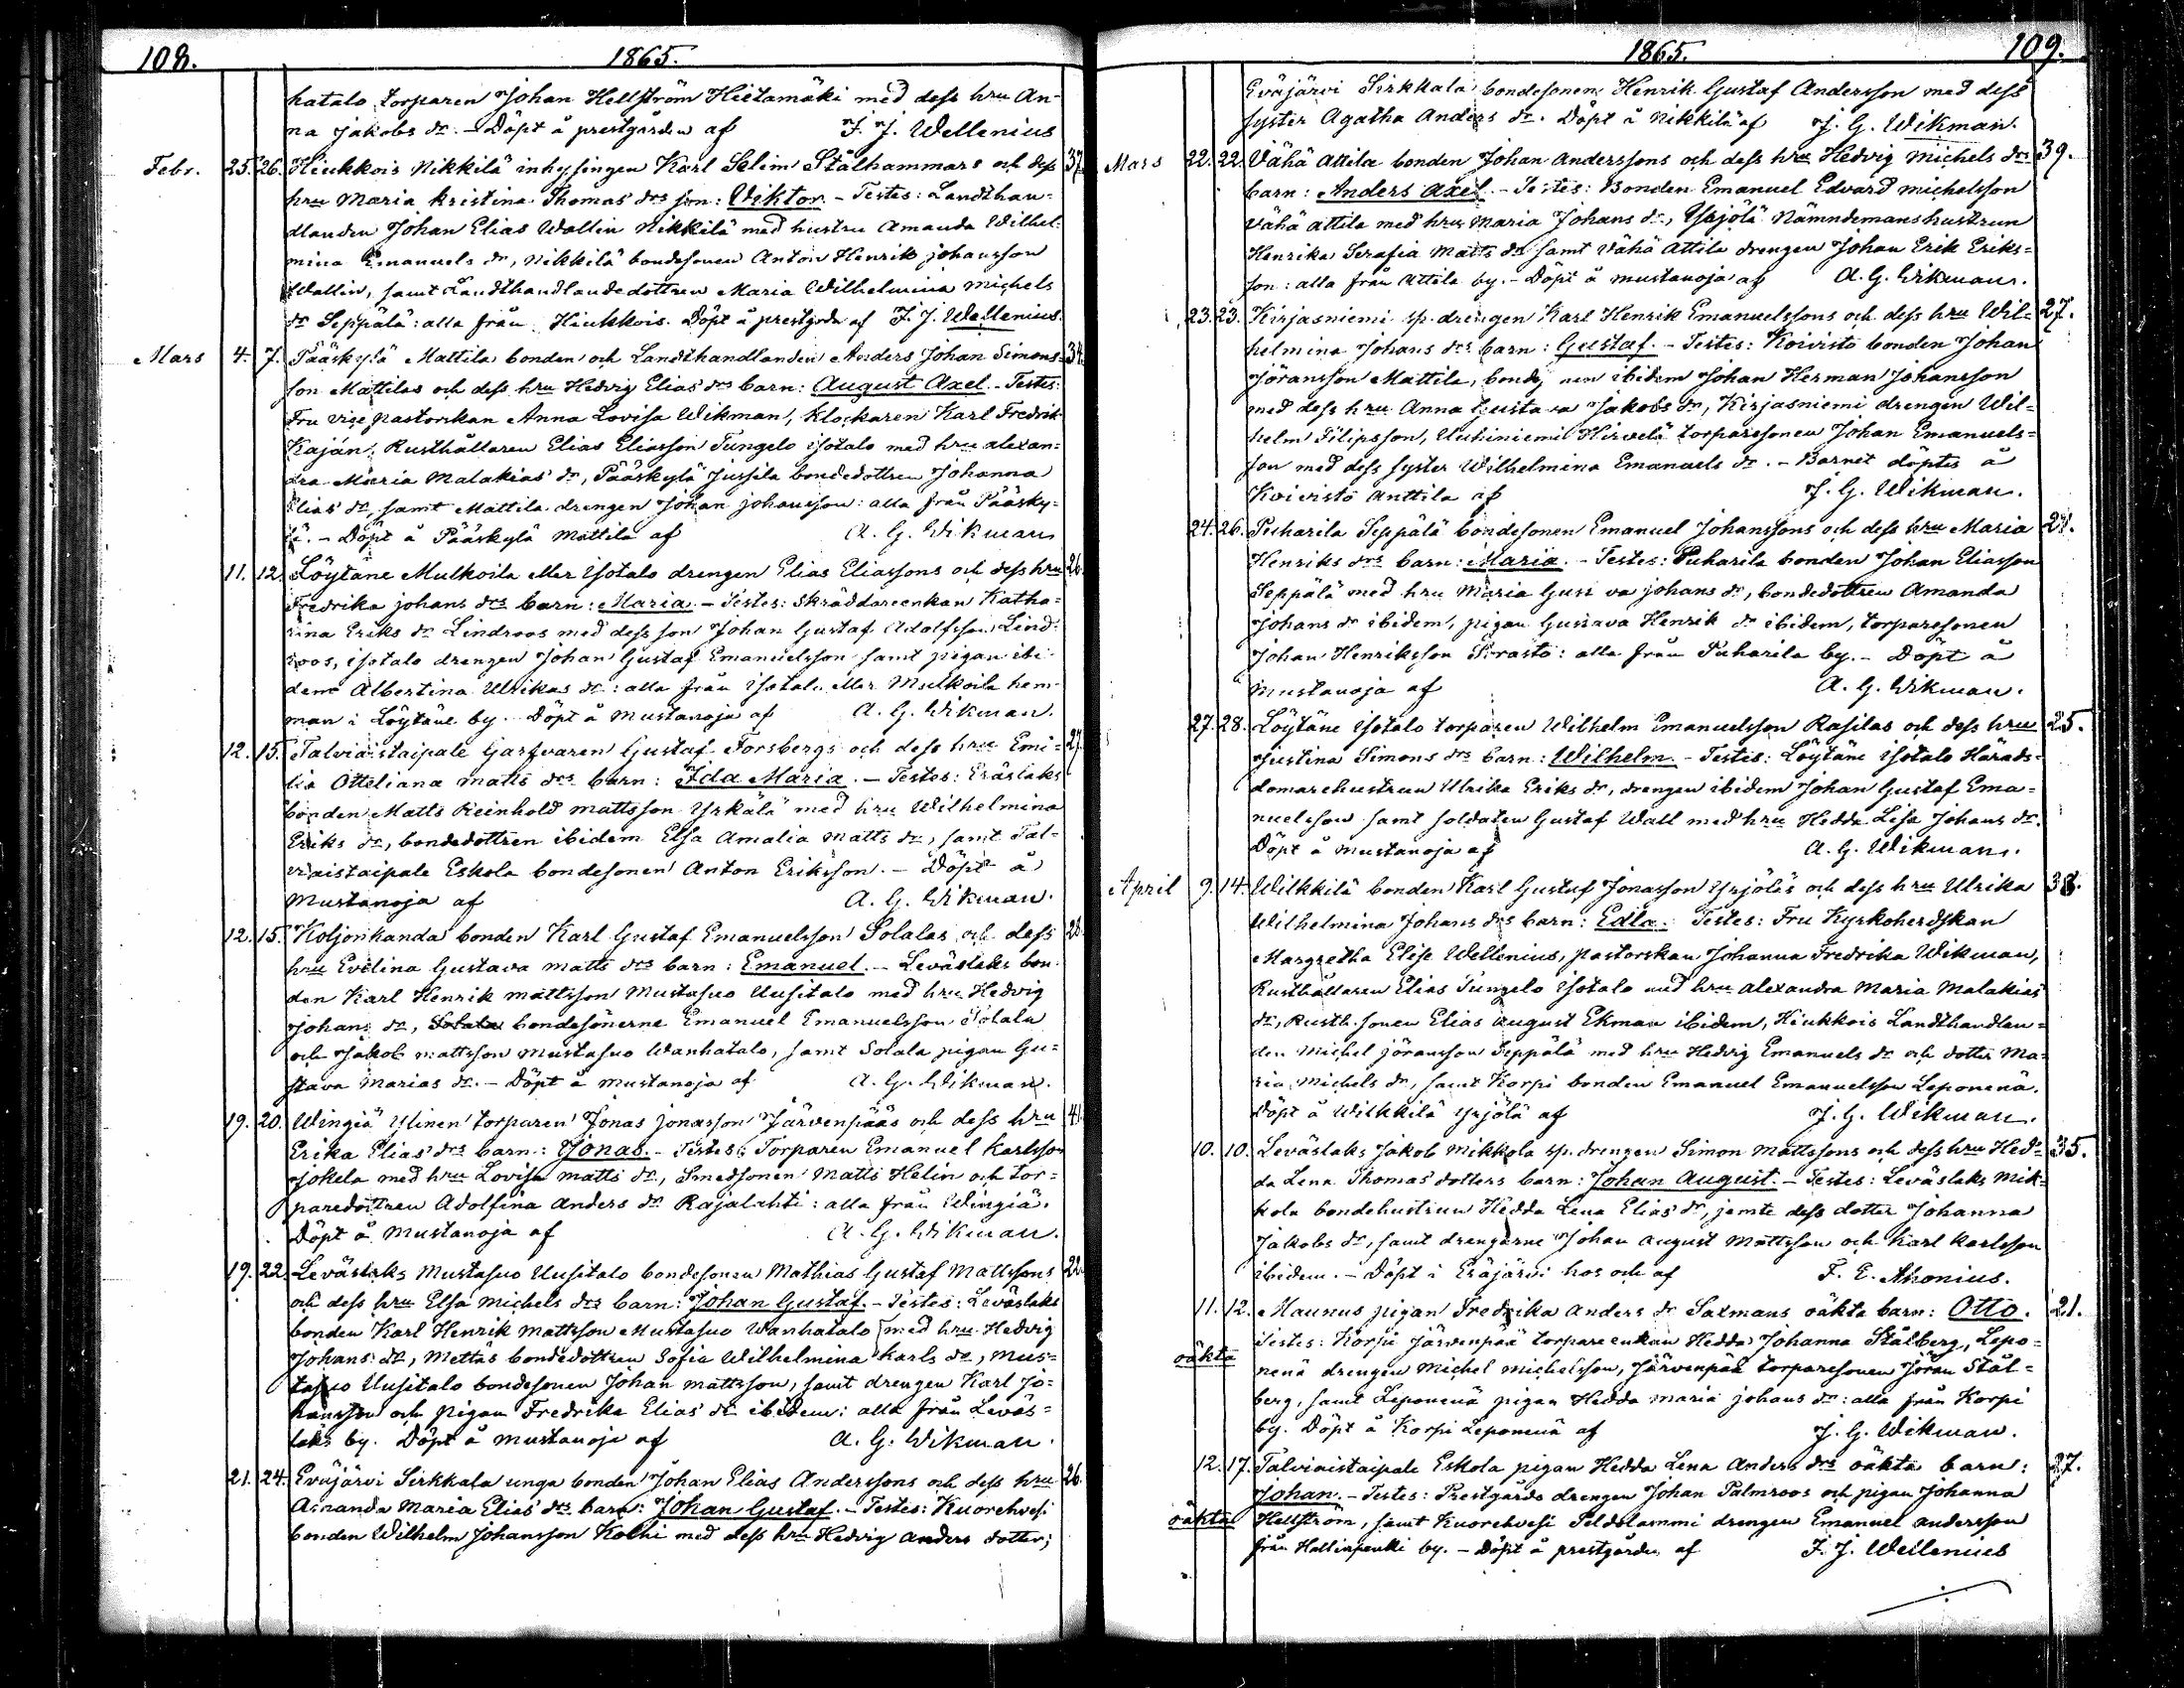 108. 1865.
hatalo torparen Johan Hellström Hietamäki med dess hru An-
na Jakobs dr. - Döpt å prestgården af F. J. Wellenius
Febr. 25. 26. Hiukkois Nikkilä inhysingen Karl Selim Stålhammars och dess 37.
hru Maria Kristina Thomas drs son: Wiktor. - Testes: Landthan-
dlanden Johan Elias Wallin Nikkilä med hustru Amanda Wilhel-
mina Emanuels dr, Nikkilä bondesonen Anton Henrik Johansson
Wallin, samt Landthandlandedottren Maria Wilhelmina Michels
dr Seppälä: alla från Hiukkois. Döpt å prestgården af F. J. Wellenius.
Mars 4. 7. Pääskylä Mattila bonden och Landthandlanden Anders Johan Simons- 34.
son Mattilas och dess hru Hedvig Elias drs barn: August Axel. - Testes:
Fru vice pastorskan Anna Lovisa Wikman, Klockaren Karl Fredrik
Kaján, Rusthållaren Elias Eliasson Tungelo Isotalo med hru Alexan-
dra Maria Malakias dr, Pääskylä Jussila bondedottren Johanna
Elias dr, samt Mattila drengen Johan Johansson: alla från Pääsky-
lä. - Döpt å Pääskylä Mattila af A. G. Wikman
11. 12. Löytäne Mulkoila eller Isotalo drengen Elias Eliassons och dess hru 26.
Fredrika Johans drs barn: Maria. - Testes: Skräddareenkan Katha-
rina Eriks dr Lindroos med dess son Johan Gustaf Adolfsson Lind-
roos, Isotalo drengen Johan Gustaf Emanuelsson samt pigan ibi-
dem Albertina Ulrikas dr: alla från Isotalo eller Mulkoila hem-
man i Löytäne by. Döpt å Mustanoja af A. G. Wikman.
12. 15. Talviaistaipale Garfvaren Gustaf Forsbergs och dess hru Emi- 27.
lia Otteliana Matts drs barn: Ida Maria. - Testes: Eräslaks
bonden Matts Reinhold Mattsson Yrkälä med hru Wilhelmina
Eriks dr, bondedottren ibidem Elsa Amalia Matts dr, samt Tal-
viaistaipale Eskola bondesonen Anton Eriksson. - Döpt å
Mustanoja af A. G. Wikman.
12. 15. Koljonkanda bonden Karl Gustaf Emanuelsson Solalas och dess 28.
hru Evelina Gustava Matts drs barn: Emanuel. - Leväslaks bon-
den Karl Henrik Mattsson Mustasuo Uusitalo med hru Hedvig
Johans dr, Solala bondesönerne Emanuel Emanuelsson Solala
och Jakob Mattsson Mustasuo Wanhatalo, samt Solala pigan Gu-
stava Marias dr. - Döpt å Mustanoja af A. G. Wikman.
19. 20. Wingiä Ylinen torparen Jonas Jonasson Järvenpääs och dess hru 41.
Erika Elias drs barn: Jonas. - Testes: Torparen Emanuel Karlsson
Jokela med hru Lovisa Matts dr, Smedsonen Matts Helin och tor-
paredottren Adolfina Anders dr Rajalahti: alla från Wingiä.
Döpt å Mustanoja af A. G. Wikman.
19. 22. Leväslaks Mustasuo Uusitalo bondesonen Mathias Gustaf Mattssons 22.
och dess hru Elsa Michels drs barn: Johan Gustaf. - Testes: Leväslaks
bonden Karl Henrik Mattsson Mustasuo Wanhatalo med hru Hedvig
Johans dr, Mettäs bondedottren Sofia Wilhelmina Karls dr, Mus-
tasuo Uusitalo bondesonen Johan Mattsson, samt drengen Karl Jo-
hansson och pigan Fredrika Elias dr ibidem: alla från Leväs-
laks by. Döpt å Mustanoja af A. G. Wikman.
21. 24. Eväjärvi Sirkkala unga bonden Johan Elias Anderssons och dess hru 26.
Amanda Maria Elias drs barn: Johan Gustaf. - Testes: Kuorehvesi
bonden Wilhelm Johansson Kolhi med dess hru Hedvig Anders dotter;
1865. 109.
Eväjärvi Sirkkala bondesonen Henrik Gustaf Andersson med dess
syster Agatha Anders dr. Döpt å Nikkilä af J. G. Wikman.
Mars 22. 22. Vähä Attila bonden Johan Anderssons och dess hru Hedvig Michels drs 39.
barn: Anders Axel. - Testes: Bonden Emanuel Edvard Michelsson
Vähä Attila med hru Maria Johans dr, Yrjölä Nämndemanshustrun
Henrika Serafia Matts dr samt Vähä Attila drengen Johan Erik Eriks-
son: alla från Attila by. - Döpt å Mustanoja af A. G. Wikman.
23. 23. Kirjasniemi sp. drengen Karl Henrik Emanuelssons och dess hru Wil- 27.
helmina Johans drs barn: Gustaf. - Testes: Koivisto bonden Johan
Jöransson Mattila, bondesonen ibidem Johan Herman Johansson
med dess hru Anna Gustava Jakobs dr, Kirjasniemi drengen Wil-
helm Filipsson, Uuhiniemi Hirvelä torparesonen Johan Emanuels-
son med dess syster Wilhelmina Emanuels dr. - Barnet döptes å
Koivisto Anttila af J. G. Wikman.
24. 26. Puharila Seppälä bondesonen Emanuel Johanssons och dess hru Maria 28.
Henriks drs barn: Maria. - Testes: Puharila bonden Johan Eliasson
Seppälä med hru Maria Gustava Johans dr, bondedottren Amanda
Johans dr ibidem, pigan Gustava Henrik dr ibidem, torparesonen
Johan Henriksson Sorasto: alla från Puharila by. - Döpt å
Mustanoja af A. G. Wikman.
27. 28. Löytäne Isotalo torparen Wilhelm Emanuelsson Rasilas och dess hru 25.
Justina Simons drs barn: Wilhelm. - Testes: Löytäne Isotalo Härads-
domarehustrun Ulrika Eriks dr, drengen ibidem Johan Gustaf Ema-
nuelsson samt soldaten Gustaf Wall med hru Hedda Lisa Johans dr.
Döpt å Mustanoja af A. G. Wikman.
April 9. 14. Wilkkilä bonden Karl Gustaf Jonasson Yrjöläs och dess hru Ulrika 38.
Wilhelmina Johans drs barn: Edla. Testes: Fru Kyrkoherdskan
Margretha Elise Wellenius, pastorskan Johanna Fredrika Wikman,
Rusthållaren Elias Tungelo Isotalo med hru Alexandra Maria Malakias
dr, Rusth. sonen Elias August Ekman ibidem, Hiukkois Landthandlan-
den Michel Jöransson Seppälä med hru Hedvig Emanuels dr och dotter Ma-
ria Michels dr, samt Korpi bonden Emanuel Emanuelsson Leponenä.
Döpt å Wilkkilä Yrjölä af J. G. Wikman.
10. 10. Leväslaks Jakob Mikkola sp. drengen Simon Mattssons och dess hru Hed- 35.
da Lena Thomas dotters barn: Johan August. - Testes: Leväslaks Mik-
kola bondehustrun Hedda Lena Elias dr, jemte dess dotter Johanna
Jakobs dr, samt drengarne Johan August Mattsson och Karl Karlsson
ibidem. - Döpt i Eräjärvi hos och af F. E. Ahonius.
11. 12. Maunus pigan Fredrika Anders dr Salmans oäkta barn: Otto. 21.
Testes: Korpi Järvenpää torpareenkan Hedda Johanna Stålberg, Lepo-
oäkta
nenä drengen Michel Michelsson, Järvenpää torparesonen Jöran Stål-
berg, samt Leponenä pigan Hedda Maria Johans dr: alla från Korpi
by. Döpt å Korpi Leponenä af J. G. Wikman.
12. 17. Talviaistaipale Eskola pigan Hedda Lena Anders drs oäkta barn: 27.
Johan. - Testes: Prestgårds drengen Johan Palmroos och pigan Johanna
oäkta Hellström, samt Kuorehvesi Peldolammi drengen Emanuel Andersson
från Hallinpenki by. - Döpt å prestgården af F. J. Wellenius